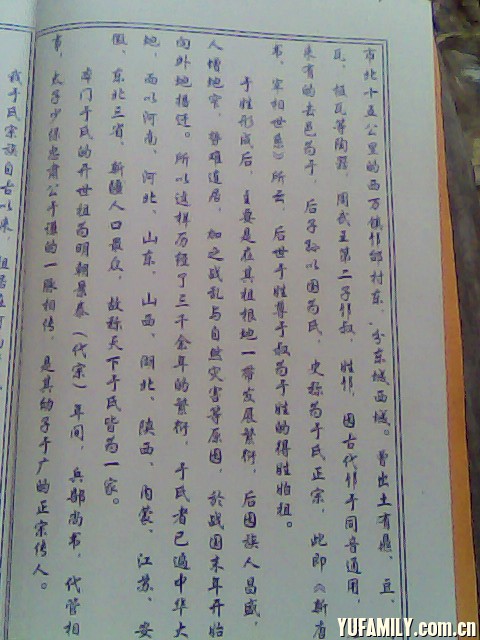 市北十五公里的西万镇邘邰村东，分东城西城。曾出土有鼎、豆、
瓦、板瓦等陶器，周武王第二子邘叔，姓邘，因古代邘于同音通用，
来有的去邑为于，后子孙以国为氏，史称为于氏正宗，此即《新唐
书、宰相世系》所云，后世于姓尊于叔为于姓的得姓始祖。
于姓形成后，主要是在其祖根地一带发展繁衍，后因族人昌盛，
人增地窄，势难连居，加之战乱与自然灾害等原因，於战国末年开始
向外地播迁。所以这样历经了三千余年的繁衍，于氏者已遍中华大
地，而以河南、河北、山东、山西、湖北、陕西、内蒙、江苏、安
徽、东北三省、新疆人口最众，故称天下于氏皆为一家。
于氏的开世祖为明朝景泰（代宗）年间，兵部尚书，代管相
事，太子少保忠肃公于谦的一脉相传，是其幼子于广的正宗传人。
我于氏宗族自古以来，祖居在河
YUFAMILY.com.cn